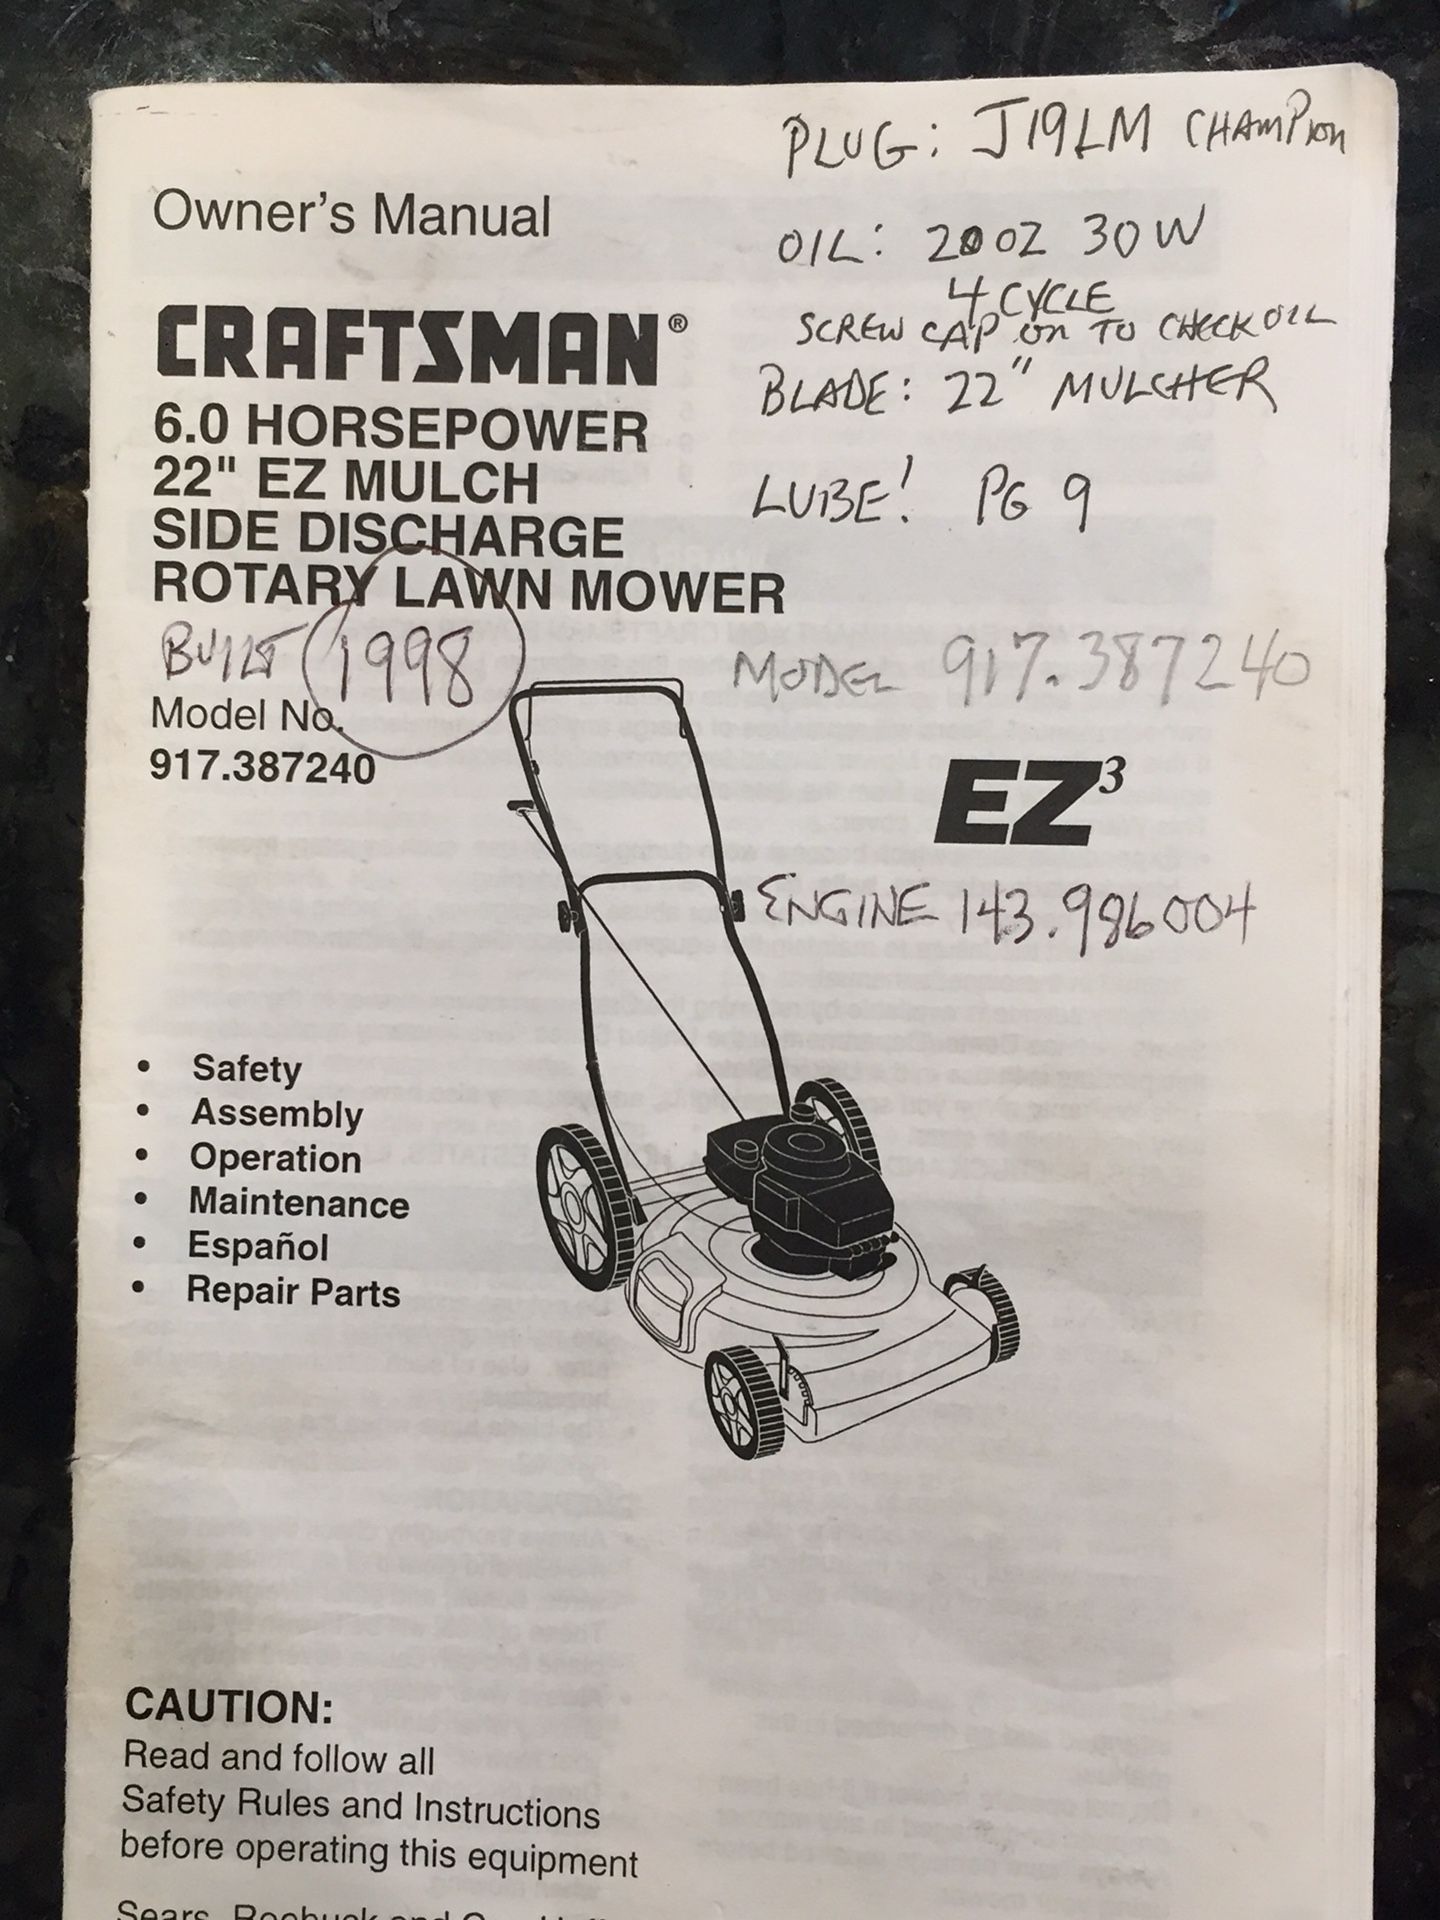 PLUG: J19LM CHAMPION
Owner's Manual
OIL: 20OZ 30W
4 CYCLE
SCREW CAP ON TO CHECK OIL
CRAFTSMAN®
BLADE: 22" MULCHER
6.0 HORSEPOWER
22" EZ MULCH
LUBE! PG 9
SIDE DISCHARGE
ROTARY LAWN MOWER
BUILT 1998
MODEL 917.387240
Model No.
917.387240
EZ³
ENGINE 143.986004
• Safety
• Assembly
• Operation
• Maintenance
• Español
• Repair Parts
CAUTION:
Read and follow all
Safety Rules and Instructions
before operating this equipment
Sears, Roebuck and Co.